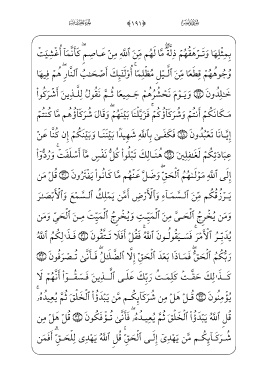 ﴿١٩١﴾
بِمِثْلِهَا وَتَرْهَقُهُمْ ذِلَّةٌ مَّا لَهُم مِّنَ ٱللَّهِ مِنْ عَاصِمٍ كَأَنَّمَآ أُغْشِيَتْ
وُجُوهُهُمْ قِطَعًا مِّنَ ٱلَّيْلِ مُظْلِمًا أُوْلَٰٓئِكَ أَصْحَٰبُ ٱلنَّارِ هُمْ فِيهَا
خَٰلِدُونَ وَيَوْمَ نَحْشُرُهُمْ جَمِيعًا ثُمَّ نَقُولُ لِلَّذِينَ أَشْرَكُوا۟
مَكَانَكُمْ أَنتُمْ وَشُرَكَآؤُكُمْ فَزَيَّلْنَا بَيْنَهُمْ وَقَالَ شُرَكَآؤُهُم مَّا كُنتُمْ
إِيَّانَا تَعْبُدُونَ فَكَفَىٰ بِٱللَّهِ شَهِيدًۢا بَيْنَنَا وَبَيْنَكُمْ إِن كُنَّا عَنْ
عِبَادَتِكُمْ لَغَٰفِلِينَ هُنَالِكَ تَبْلُوا۟ كُلُّ نَفْسٍ مَّآ أَسْلَفَتْ وَرُدُّوٓا۟
إِلَى ٱللَّهِ مَوْلَىٰهُمُ ٱلْحَقِّ وَضَلَّ عَنْهُم مَّا كَانُوا۟ يَفْتَرُونَ قُلْ مَن
يَرْزُقُكُم مِّنَ ٱلسَّمَآءِ وَٱلْأَرْضِ أَمَّن يَمْلِكُ ٱلسَّمْعَ وَٱلْأَبْصَٰرَ
وَمَن يُخْرِجُ ٱلْحَىَّ مِنَ ٱلْمَيِّتِ وَيُخْرِجُ ٱلْمَيِّتَ مِنَ ٱلْحَىِّ وَمَن
يُدَبِّرُ ٱلْأَمْرَ فَسَيَقُولُونَ ٱللَّهُ فَقُلْ أَفَلَا تَتَّقُونَ فَذَٰلِكُمُ ٱللَّهُ
رَبُّكُمُ ٱلْحَقُّ فَمَاذَا بَعْدَ ٱلْحَقِّ إِلَّا ٱلضَّلَٰلُ فَأَنَّىٰ تُصْرَفُونَ
كَذَٰلِكَ حَقَّتْ كَلِمَتُ رَبِّكَ عَلَى ٱلَّذِينَ فَسَقُوٓا۟ أَنَّهُمْ لَا
يُؤْمِنُونَ قُلْ هَلْ مِن شُرَكَآئِكُم مَّن يَبْدَؤُا۟ ٱلْخَلْقَ ثُمَّ يُعِيدُهُۥ
قُلِ ٱللَّهُ يَبْدَؤُا۟ ٱلْخَلْقَ ثُمَّ يُعِيدُهُۥ فَأَنَّىٰ تُؤْفَكُونَ قُلْ هَلْ مِن
شُرَكَآئِكُم مَّن يَهْدِىٓ إِلَى ٱلْحَقِّ قُلِ ٱللَّهُ يَهْدِى لِلْحَقِّ أَفَمَن